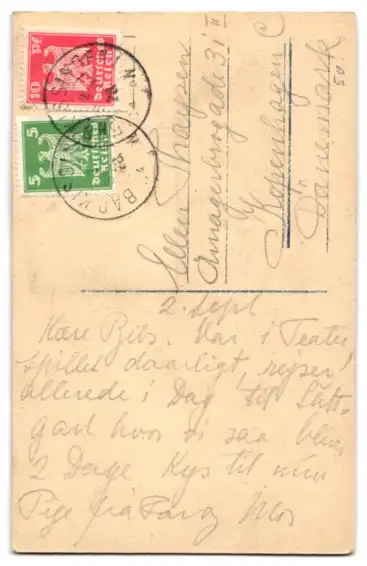 10 Pf.
Deutsches
Reich
5
Deutsches
Reich
Ellen
Amagerbrogade 31
Kopenhagen
Dänemark
50.
2. Sept
Kære Bibs. Var i Teater
spillet daarligt, rejser
allerede i Dag til Stutt-
gart hvor vi saa bliver
2 Dage Kys til min
Pige fra Far og Mor